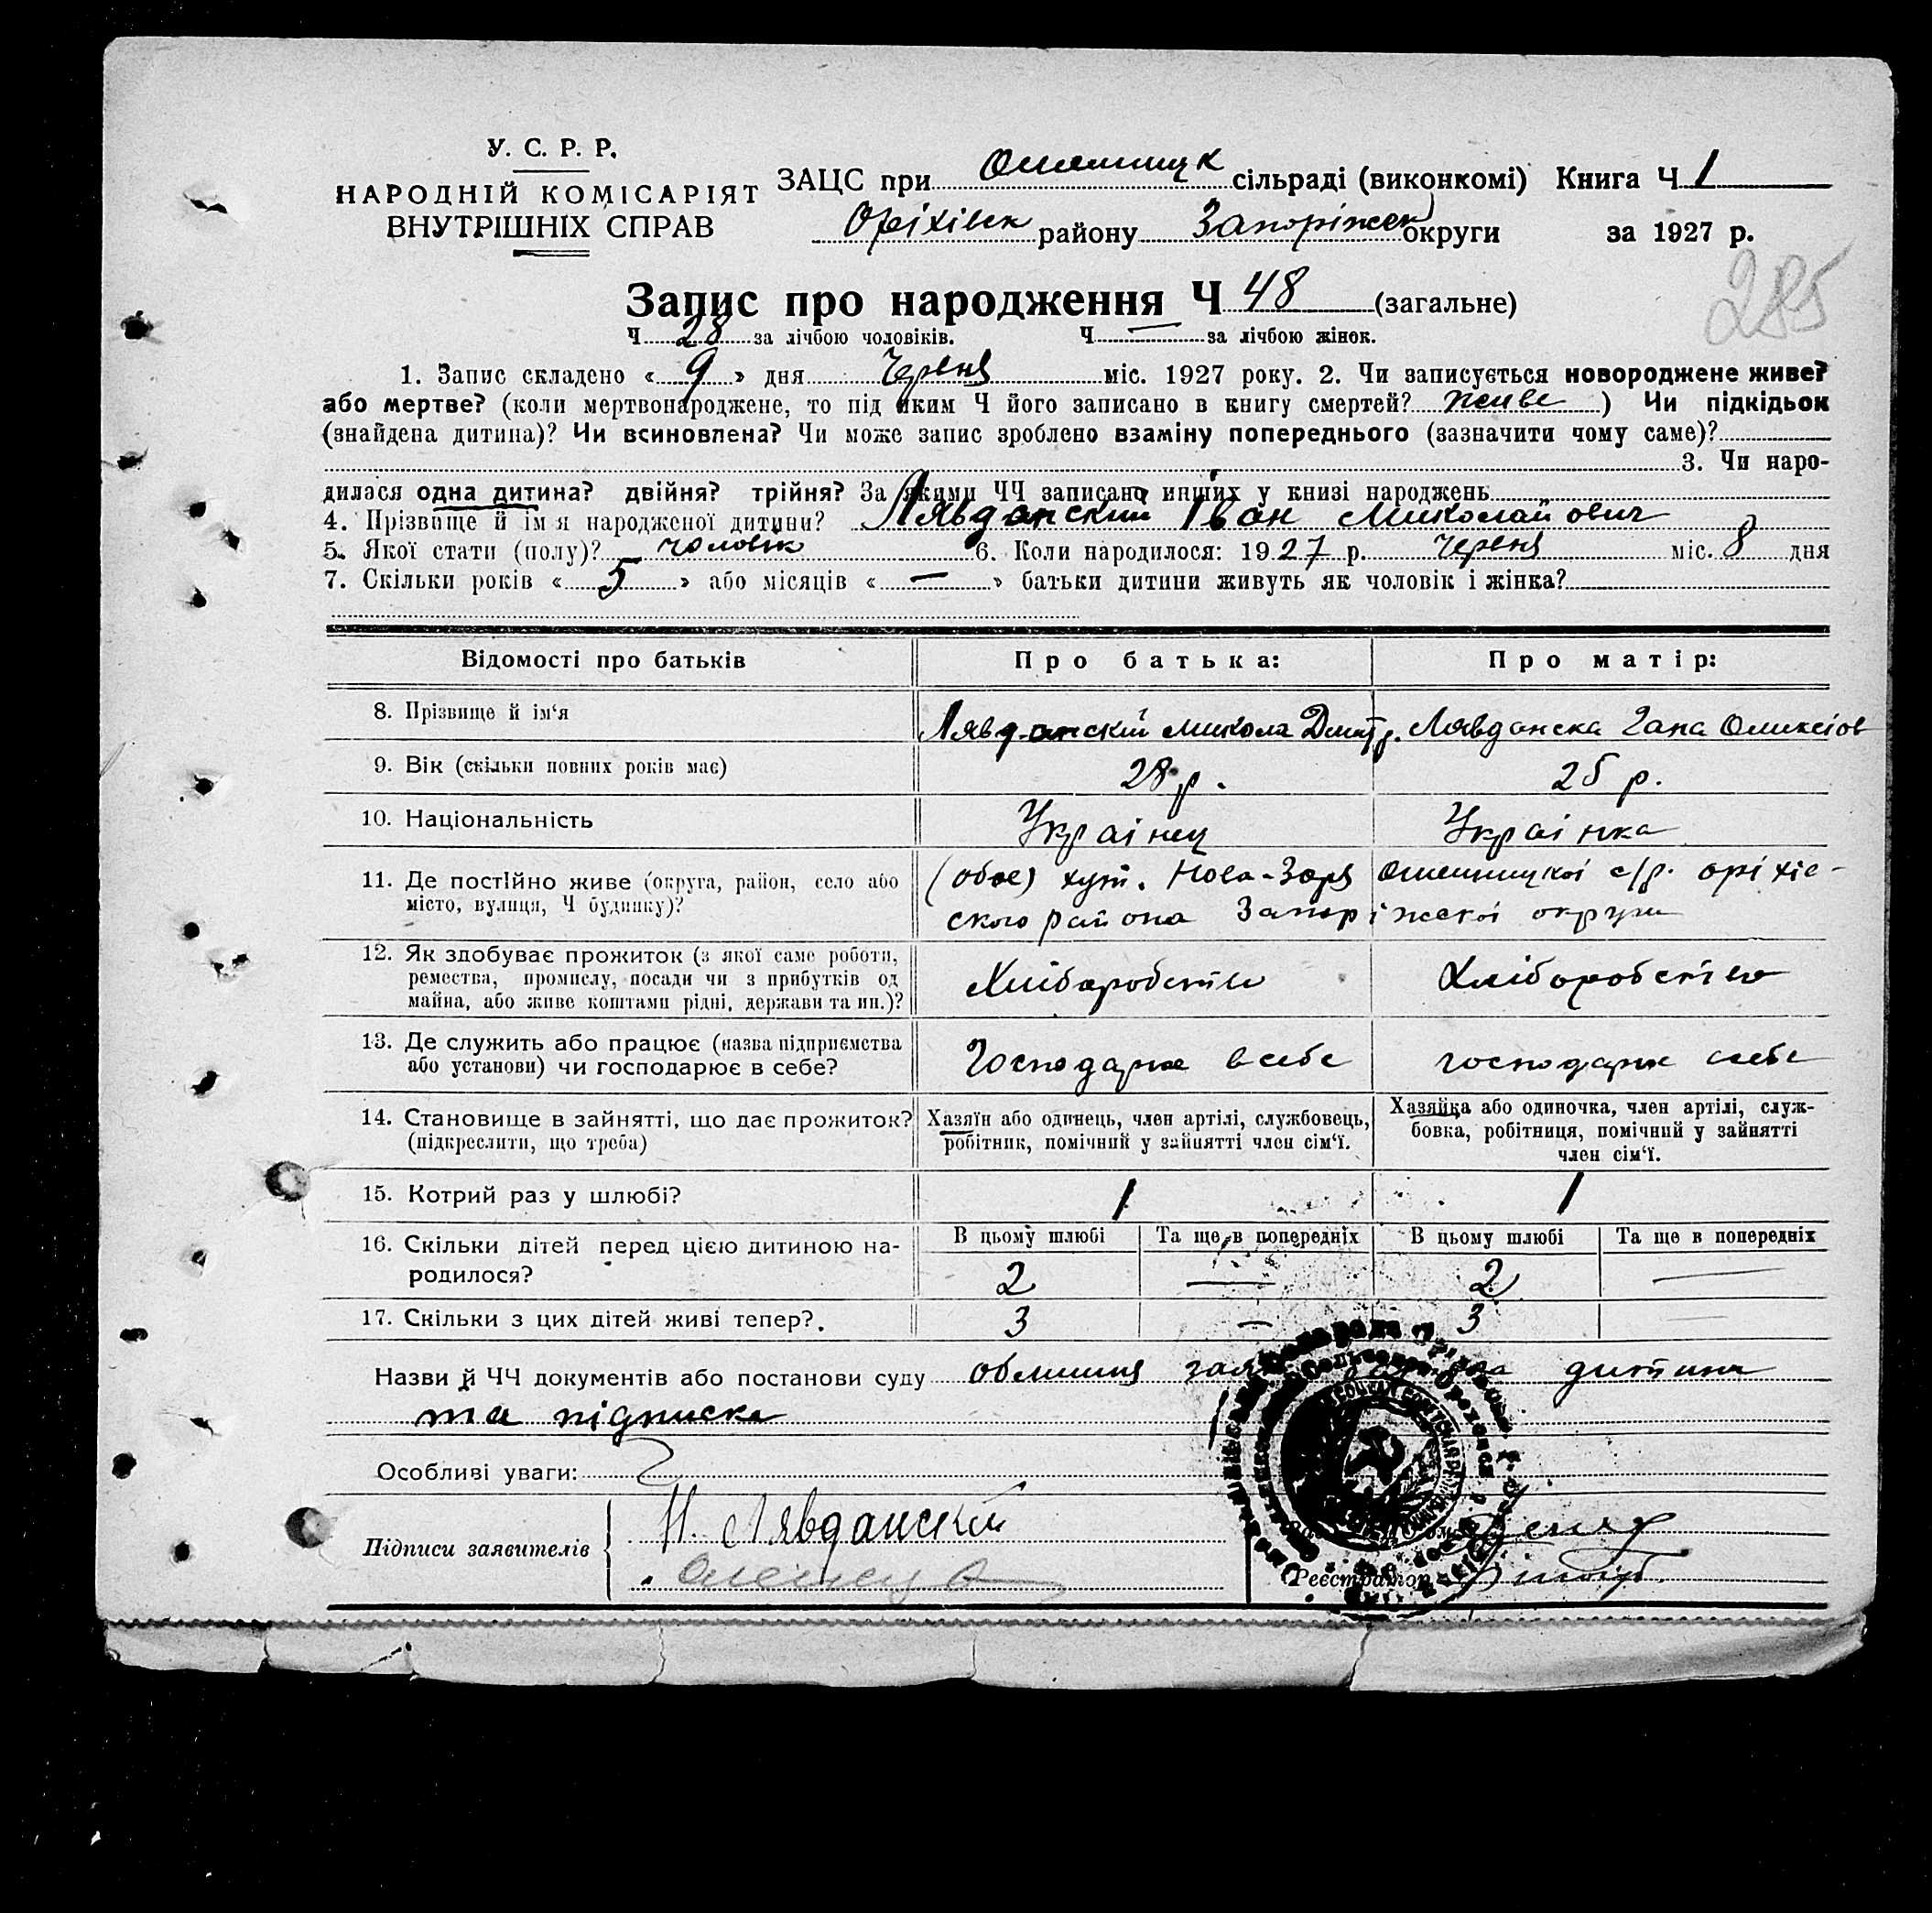 У. С. Р. Р.
НАРОДНІЙ КОМІСАРІЯТ
ВНУТРІШНІХ СПРАВ
ЗАЦС при Омельницк сільраді (виконкомі) Книга Ч 1
Оріхівск району Запоріжск округи за 1927 р.
285
Запис про народження Ч 48 (загальне)
Ч 28 за лічбою чоловіків. Ч — за лічбою жінок.
1. Запис складено « 9 » дня Червня міс. 1927 року. 2. Чи записується новороджене живе?
або мертве? (коли мертвонароджене, то під яким Ч його записано в книгу смертей? живе ) Чи підкідьок
(знайдена дитина)? Чи всиновлена? Чи може запис зроблено взаміну попереднього (зазначити чому саме)?
3. Чи наро-
дилася одна дитина? двійня? трійня? За якими ЧЧ записано инших у книзі народжень
4. Прізвище й ім'я народженої дитини? Лявданский Іван Миколайович
5. Якої стати (полу)? чоловік 6. Коли народилося: 1927 р. Червня міс. 8 дня
7. Скільки років « 5 » або місяців « — » батьки дитини живуть як чоловік і жінка?
Відомості про батьків Про батька: Про матір:
8. Прізвище й ім'я Лявданский Микола Дмитр. Лявданска Гапа Оликсіов
9. Вік (скільки повних років має) 28 р. 25 р.
10. Національність Українец Українка
11. Де постійно живе (округа, район, село або (обое) хут. Нова-Зоря Омельницкоі с/р. оріхів-
місто, вулиця, Ч будинку)? ского района Запоріжскоі округи
12. Як здобуває прожиток (з якої саме роботи,
ремества, промислу, посади чи з прибутків од Хліборобство Хліборобство
майна, або живе коштами рідні, держави та ин.)?
13. Де служить або працює (назва підприємства
або установи) чи господарює в себе? Господарює в себе господарює себе
14. Становище в зайнятті, що дає прожиток? Хазяїн або одинець, член артілі, службовець, Хазяйка або одиночка, член артілі, служ-
(підкреслити, що треба) робітник, помічний у зайнятті член сім'ї. бовка, робітниця, помічний у зайнятті
член сім'ї.
15. Котрий раз у шлюбі? 1 1
16. Скільки дітей перед цією дитиною на- В цьому шлюбі Та ще в попередніх В цьому шлюбі Та ще в попередніх
родилося? 2 — 2 —
17. Скільки з цих дітей живі тепер? 3 — 3 —
Назви й ЧЧ документів або постанови суду дитина
та підписка
Особливі уваги:
Підписи заявителів Н. Лявданский
Реєстратор